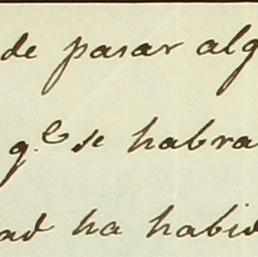 de pasar alg
q.e se habra
ad ha habid